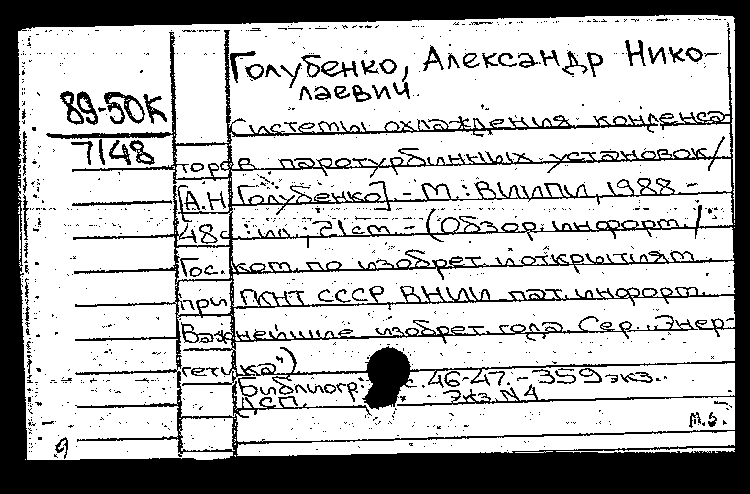 Голубенко, Александр Нико-
лаевич
89-50К
7148
Системы охлаждения конденса-
торов паротурбинных установок/
[А.Н. Голубенко] - М.: ВНИИПИ, 1988 -
48с.: ил.; 21см. - (Обзор. информ. /
Гос. ком. по изобрет. и открытиям
при ГКНТ СССР, ВНИИ пат. информ.
Важнейшие изобрет. года. Сер. "Энер-
гетика")
Библиогр.: с. 46-47. - 359 экз.
ДСП. Экз. N 4
М.Б.
9